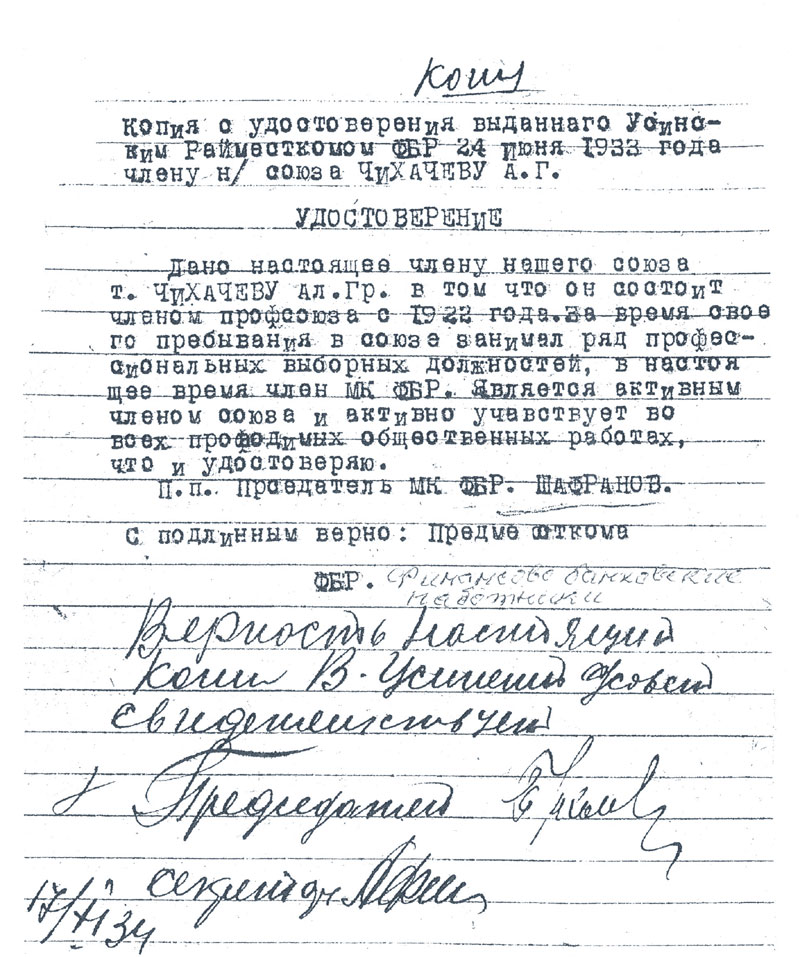 Копия
Копия с удостоверения выданнаго Усинс-
ким Райместкомом ФБР 24 июня 1933 года
члену н/ союза ЧИХАЧЕВУ А.Г.
УДОСТОВЕРЕНИЕ
Дано настоящее члену нашего союза
т. ЧИХАЧЕВУ Ал.Гр. в том что он состоит
членом профсоюза с 1922 года.За время свое
го пребывания в союзе занимал ряд профес-
сиональных выборных должностей, в настоя
щее время член МК ФБР. Является активным
членом союза и активно учавствует во
всех профодимых общественных работах,
что и удостоверяю.
П.п. Прседатель МК ФБР. ШАФРАНОВ.
С подлинным верно: Предме сткома
ФБР. Финансово банковские
работники
Верность настоящей
копии В-Усинский
свидетельствует
Председатель
секретарь
17/VI 34